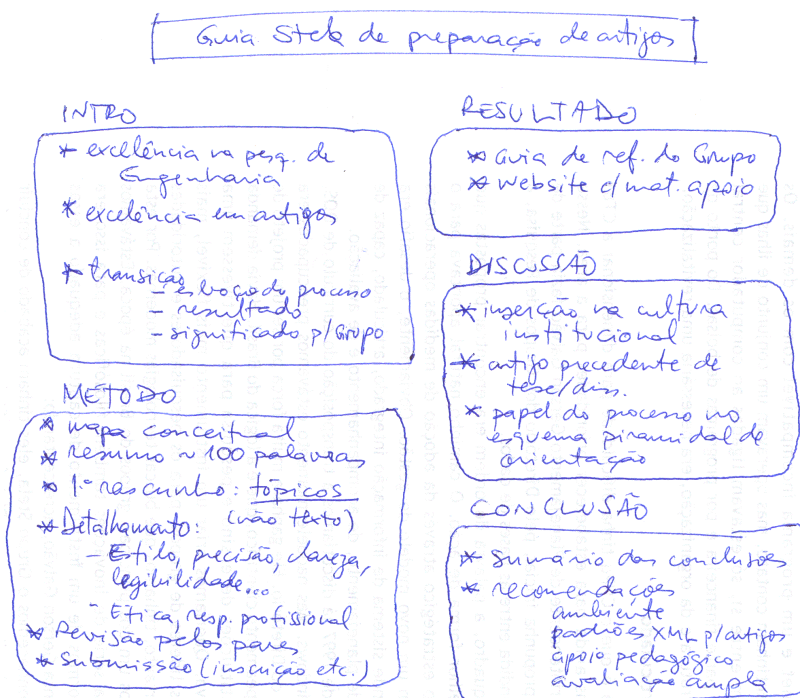 Guia Stela de preparação de artigos
INTRO
* excelência na pesq. de
Engenharia
* excelência em artigos
* transição
- esboço do processo
- resultado
- significado p/ Grupo
MÉTODO
* mapa conceitual
* resumo ~ 100 palavras
* 1º rascunho: tópicos
(não texto)
* Detalhamento:
- Estilo, precisão, clareza,
legibilidade...
- Ética, resp. profissional
* Revisão pelos pares
* Submissão (inscrição etc.)
RESULTADO
* Guia de ref. do Grupo
* website c/ mat. apoio
DISCUSSÃO
* inserção na cultura
institucional
* artigo precedente de
tese/diss.
* papel do processo no
esquema piramidal de
orientação
CONCLUSÃO
* Sumário das conclusões
* recomendações
ambiente
padrões XML p/ artigos
apoio pedagógico
avaliação ampla